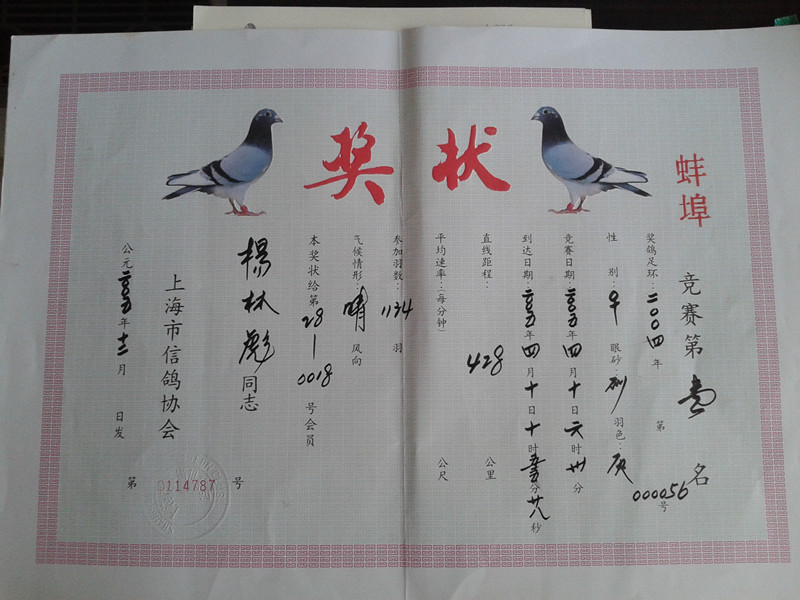 奖状
蚌埠
竞赛第壹名
奖鸽足环：二00四年第000056号
性别：♀ 眼砂：砂 羽色：灰
竞赛日期：二00五年四月十日六时卅分
到达日期：二00五年四月十日十时五五分廿八秒
直线距程：428公里
平均速率：(每分钟) 公尺
参加羽数：1134羽
气候情形：晴 风向
本奖状给第28—0018号会员
楊林彪同志
上海市信鸽协会
公元二00五年十二月 日发
第0114787号